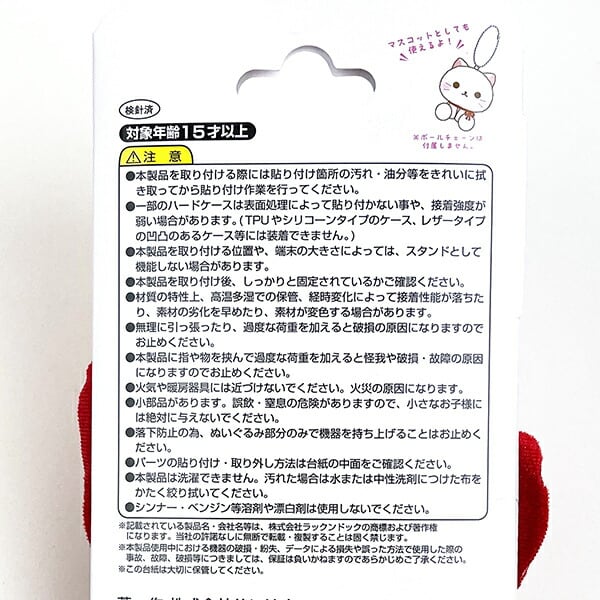 マスコットとしても
使えるよ！
※ボールチェーンは
付属しません。
検針済
対象年齢15才以上
注 意
●本製品を取り付ける際には貼り付け箇所の汚れ・油分等をきれいに拭
き取ってから貼り付け作業を行ってください。
●一部のハードケースは表面処理によって貼り付かない事や、接着強度が
弱い場合があります。(TPUやシリコーンタイプのケース、レザータイプ
の凹凸のあるケース等には装着できません。)
●本製品を取り付ける位置や、端末の大きさによっては、スタンドとして
機能しない場合があります。
●本製品を取り付け後、しっかりと固定されているかご確認ください。
●材質の特性上、高温多湿での保管、経時変化によって接着性能が落ちた
り、素材の劣化を早めたり、素材が変色する場合があります。
●無理に引っ張ったり、過度な荷重を加えると破損の原因になりますので
お止めください。
●本製品に指や物を挟んで過度な荷重を加えると怪我や破損・故障の原因
になりますのでお止めください。
●火気や暖房器具には近づけないでください。火災の原因になります。
●小部品があります。誤飲・窒息の危険がありますので、小さなお子様に
は絶対に与えないでください。
●落下防止の為、ぬいぐるみ部分のみで機器を持ち上げることはお止めく
ださい。
●パーツの貼り付け・取り外し方法は台紙の中面をご確認ください。
●本製品は洗濯できません。汚れた場合は水または中性洗剤につけた布を
かたく絞り拭いてください。
●シンナー・ベンジン等溶剤や漂白剤は使用しないでください。
※記載されている製品名・会社名等は、株式会社ラックンドックの商標および著作権
になります。当社の許諾なしに無断で転載・複製することは固く禁じます。
※本製品使用中における機器の破損・紛失、データによる損失や誤った方法で使用した際の
事故、故障、破損等につきましては、保証は負いかねますのであらかじめご了承ください。
※この台紙は大切に保管してください。